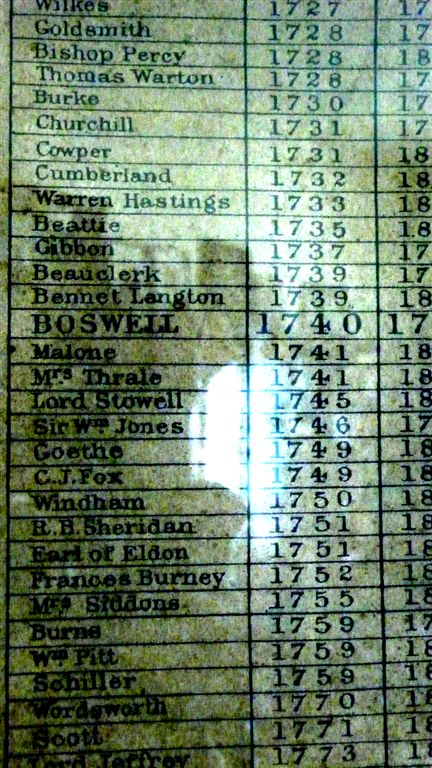 Wilkes 1727 17
Goldsmith 1728 17
Bishop Percy 1728 18
Thomas Warton 1728 17
Burke 1730 17
Churchill 1731 17
Cowper 1731 18
Cumberland 1732 18
Warren Hastings 1733 18
Beattie 1735 18
Gibbon 1737 17
Beauclerk 1739 17
Bennet Langton 1739 18
BOSWELL 1740 17
Malone 1741 18
Mrs Thrale 1741 18
Lord Stowell 1745 18
Sir Wm Jones 1746 17
Goethe 1749 18
C.J. Fox 1749 18
Windham 1750 18
R.B. Sheridan 1751 18
Earl of Eldon 1751 18
Frances Burney 1752 18
Mrs Siddons 1755 18
Burns 1759 17
Wm Pitt 1759 18
Schiller 1759 18
Wordsworth 1770 18
Scott 1771 18
Lord Jeffrey 1773 18